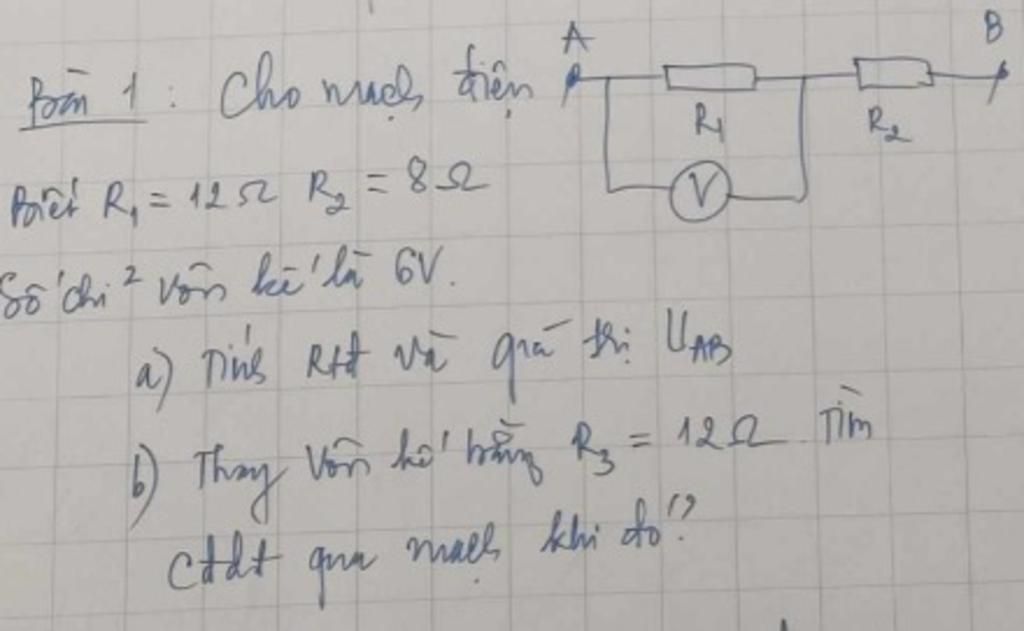 Bài 1 : Cho mạch điện
A
B
R₁
R₂
V
Biết R₁ = 12Ω R₂ = 8Ω
Số chỉ vôn kế là 6V.
a) Tính Rtđ và giá trị UAB
b) Thay vôn kế bằng R₃ = 12Ω Tìm
cđdđ qua mạch khi đó ?